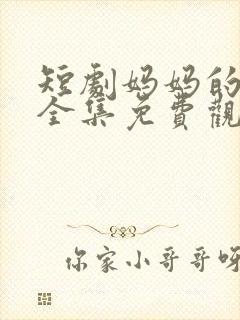 短劇妈妈的
全集免費觀
你家小哥哥呀